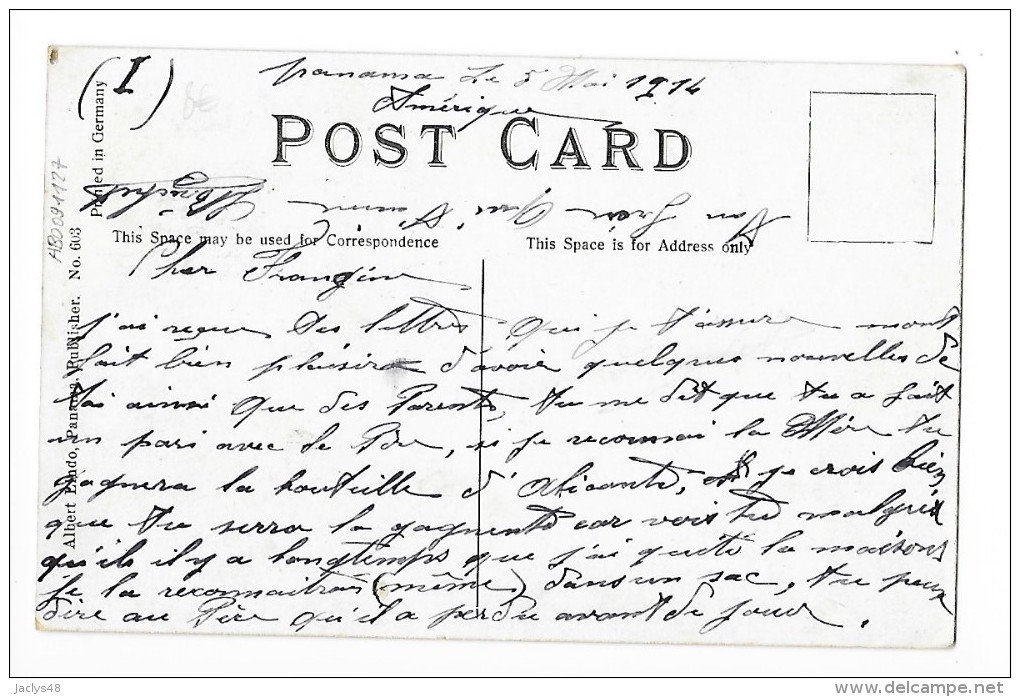 (I)
Panama Le 5 Mai 1914
Amérique
POST CARD
This Space may be used for Correspondence
This Space is for Address only
Printed in Germany
No. 603
Albert Lindo, Panama, Publisher.
AB0091127
Cher Frangin
j'ai reçue Des lettres qui je t'assure mont
fait bien plaisire d'avoir quelques nouvelles de
Toi ainsi que des Parents, tu me dit que tu a fait
un pari avec le Père, si je reconnai la Mère tu
gagnera la bouteille d'Alicante, je crois bien
que tu serra la gagnente car vois tu malgrés
qu'ils il y a longtemps que j'ai quité la maisons
je la reconnaitrais (même) dans un sac, tu peux
dire au Père qu'il a perdu avant de jouer.
jaclys48
www.delcampe.net